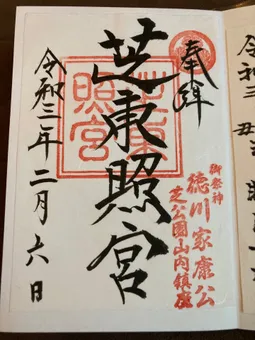 奉拝
御祭神
徳川家康公
芝公園山内鎮座
芝東照宮
芝東照宮
令和三年二月六日
令和三